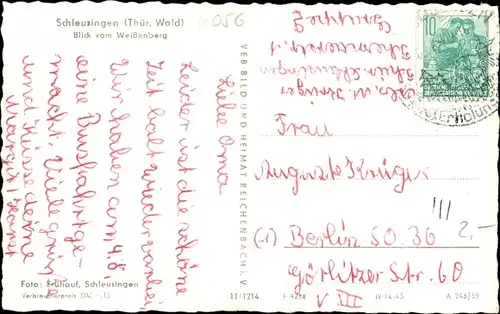 Schleusingen (Thür. Wald)
Blick vom Weißenberg
056
Liebe Oma
Leider ist die schöne
Zeit bald wieder vorbei.
Wir haben am 4.8.
eine Busfahrt ge-
macht. Viele Grüße
und Küsse deine
Foto: Frühauf, Schleusingen
Verbraucherpreis DM -,15
VEB BILD UND HEIMAT REICHENBACH i. V.
11/1214
IV-14-45
A 246/59
10
DEUTSCHE DEMOKRATISCHE REPUBLIK
Frau
Auguste Krüger
(1) Berlin SO. 36
Görlitzer Str. 60
V III
III
2,-